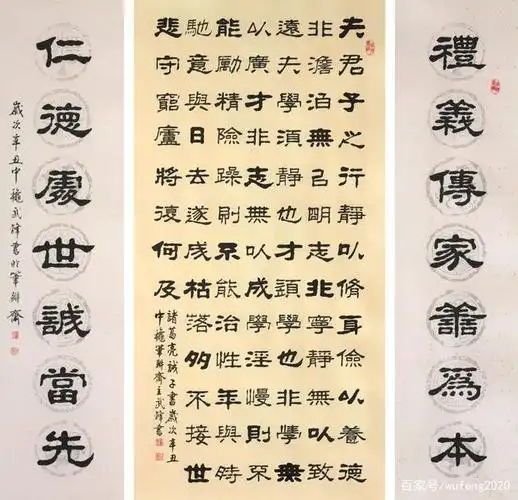 禮義傳家譱爲本
夫君子之行靜以脩身儉以養德
非澹泊無以明志非寧靜無以致
遠夫學須靜也才須學也非學無
以廣才非志無以成學淫慢則不
能勵精險躁則不能治性年與時
馳意與日去遂成枯落多不接世
悲守窮廬將復何及
諸葛亮誡子書歲次辛丑
中穐筆耕齋主武鋒書
仁德處世誠當先
歲次辛丑中穐武鋒書於筆耕齋
百家号/wufeng2020